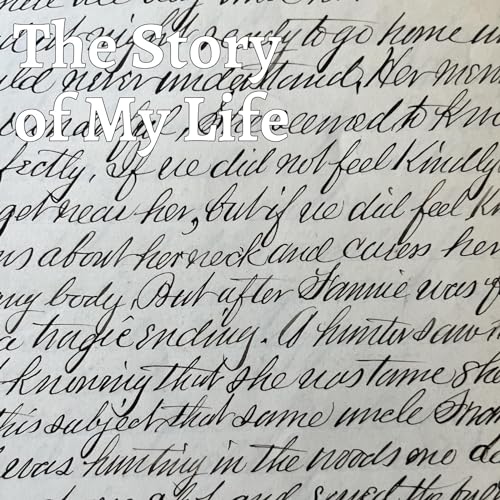 The Story
of My Life
night ready to go home
never understand. Her
seemed to
If we did not feel kindly
get near her, but if we did feel
about her neck and caress her
any body. But after Fannie was
a tragic ending. A hunter saw
knowing that she was tame
this subject, that same uncle
was hunting in the woods one
and